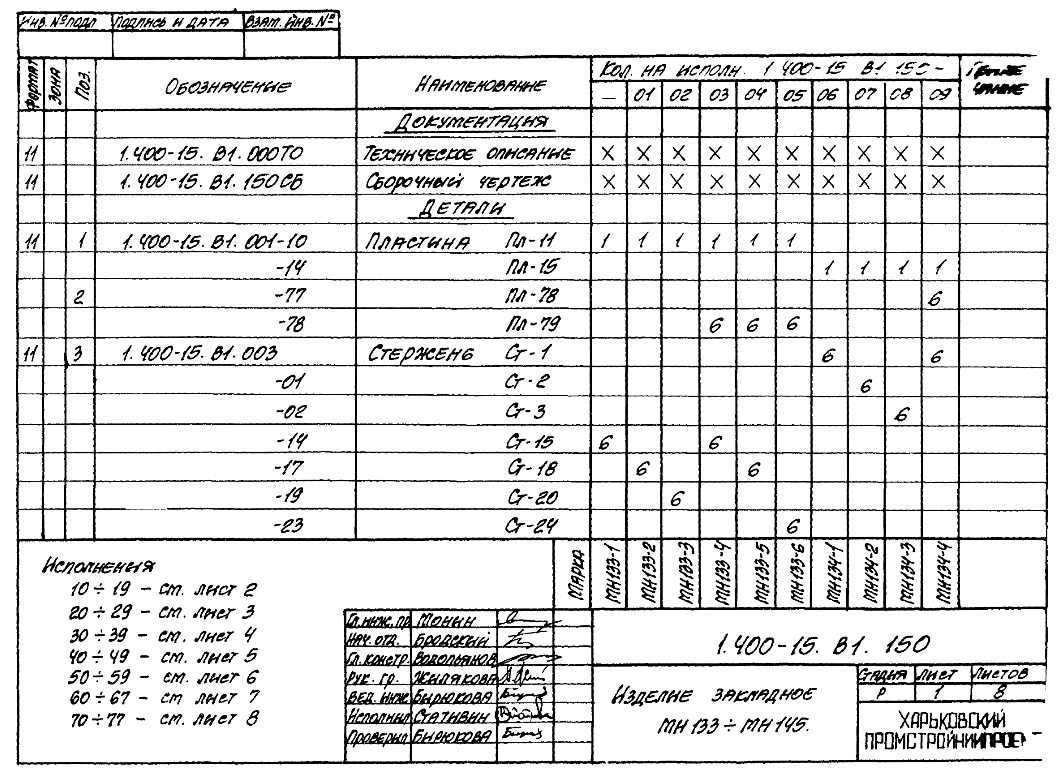 Инв. № подл. Подпись и дата Взам. Инв. №
Формат Зона Поз. Обозначение Наименование Кол. на исполн. 1.400-15 В1 150- Примечание
— 01 02 03 04 05 06 07 08 09
Документация
11 1.400-15. В1. 000ТО Техническое описание X X X X X X X X X X
11 1.400-15. В1. 150СБ Сборочный чертеж X X X X X X X X X X
Детали
11 1 1.400-15. В1. 001-10 Пластина Пл-11 1 1 1 1 1 1
-14 Пл-15 1 1 1 1
2 -77 Пл-78 6
-78 Пл-79 6 6 6
11 3 1.400-15. В1. 003 Стержень Ст-1 6 6
-01 Ст-2 6
-02 Ст-3 6
-14 Ст-15 6 6
-17 Ст-18 6 6
-19 Ст-20 6
-23 Ст-24 6
Марка МН133-1 МН133-2 МН133-3 МН133-4 МН133-5 МН133-6 МН134-1 МН134-2 МН134-3 МН134-4
Исполнения
10÷19 – см. лист 2
20÷29 – см. лист 3
30÷39 – см. лист 4
40÷49 – см. лист 5
50÷59 – см. лист 6
60÷67 – см. лист 7
70÷77 – см. лист 8
Гл. инж. пр. Монин
Нач. отд. Бродский
Гл. констр. Водопьянов
Рук. гр. Жилякова
Вед. инж. Бирюкова
Исполнил Стативин
Проверил Бирюкова
1.400-15. В1. 150
Изделие закладное
МН133÷МН145.
Стадия Лист Листов
Р 1 8
ХАРЬКОВСКИЙ
ПРОМСТРОЙНИИПРОЕКТ